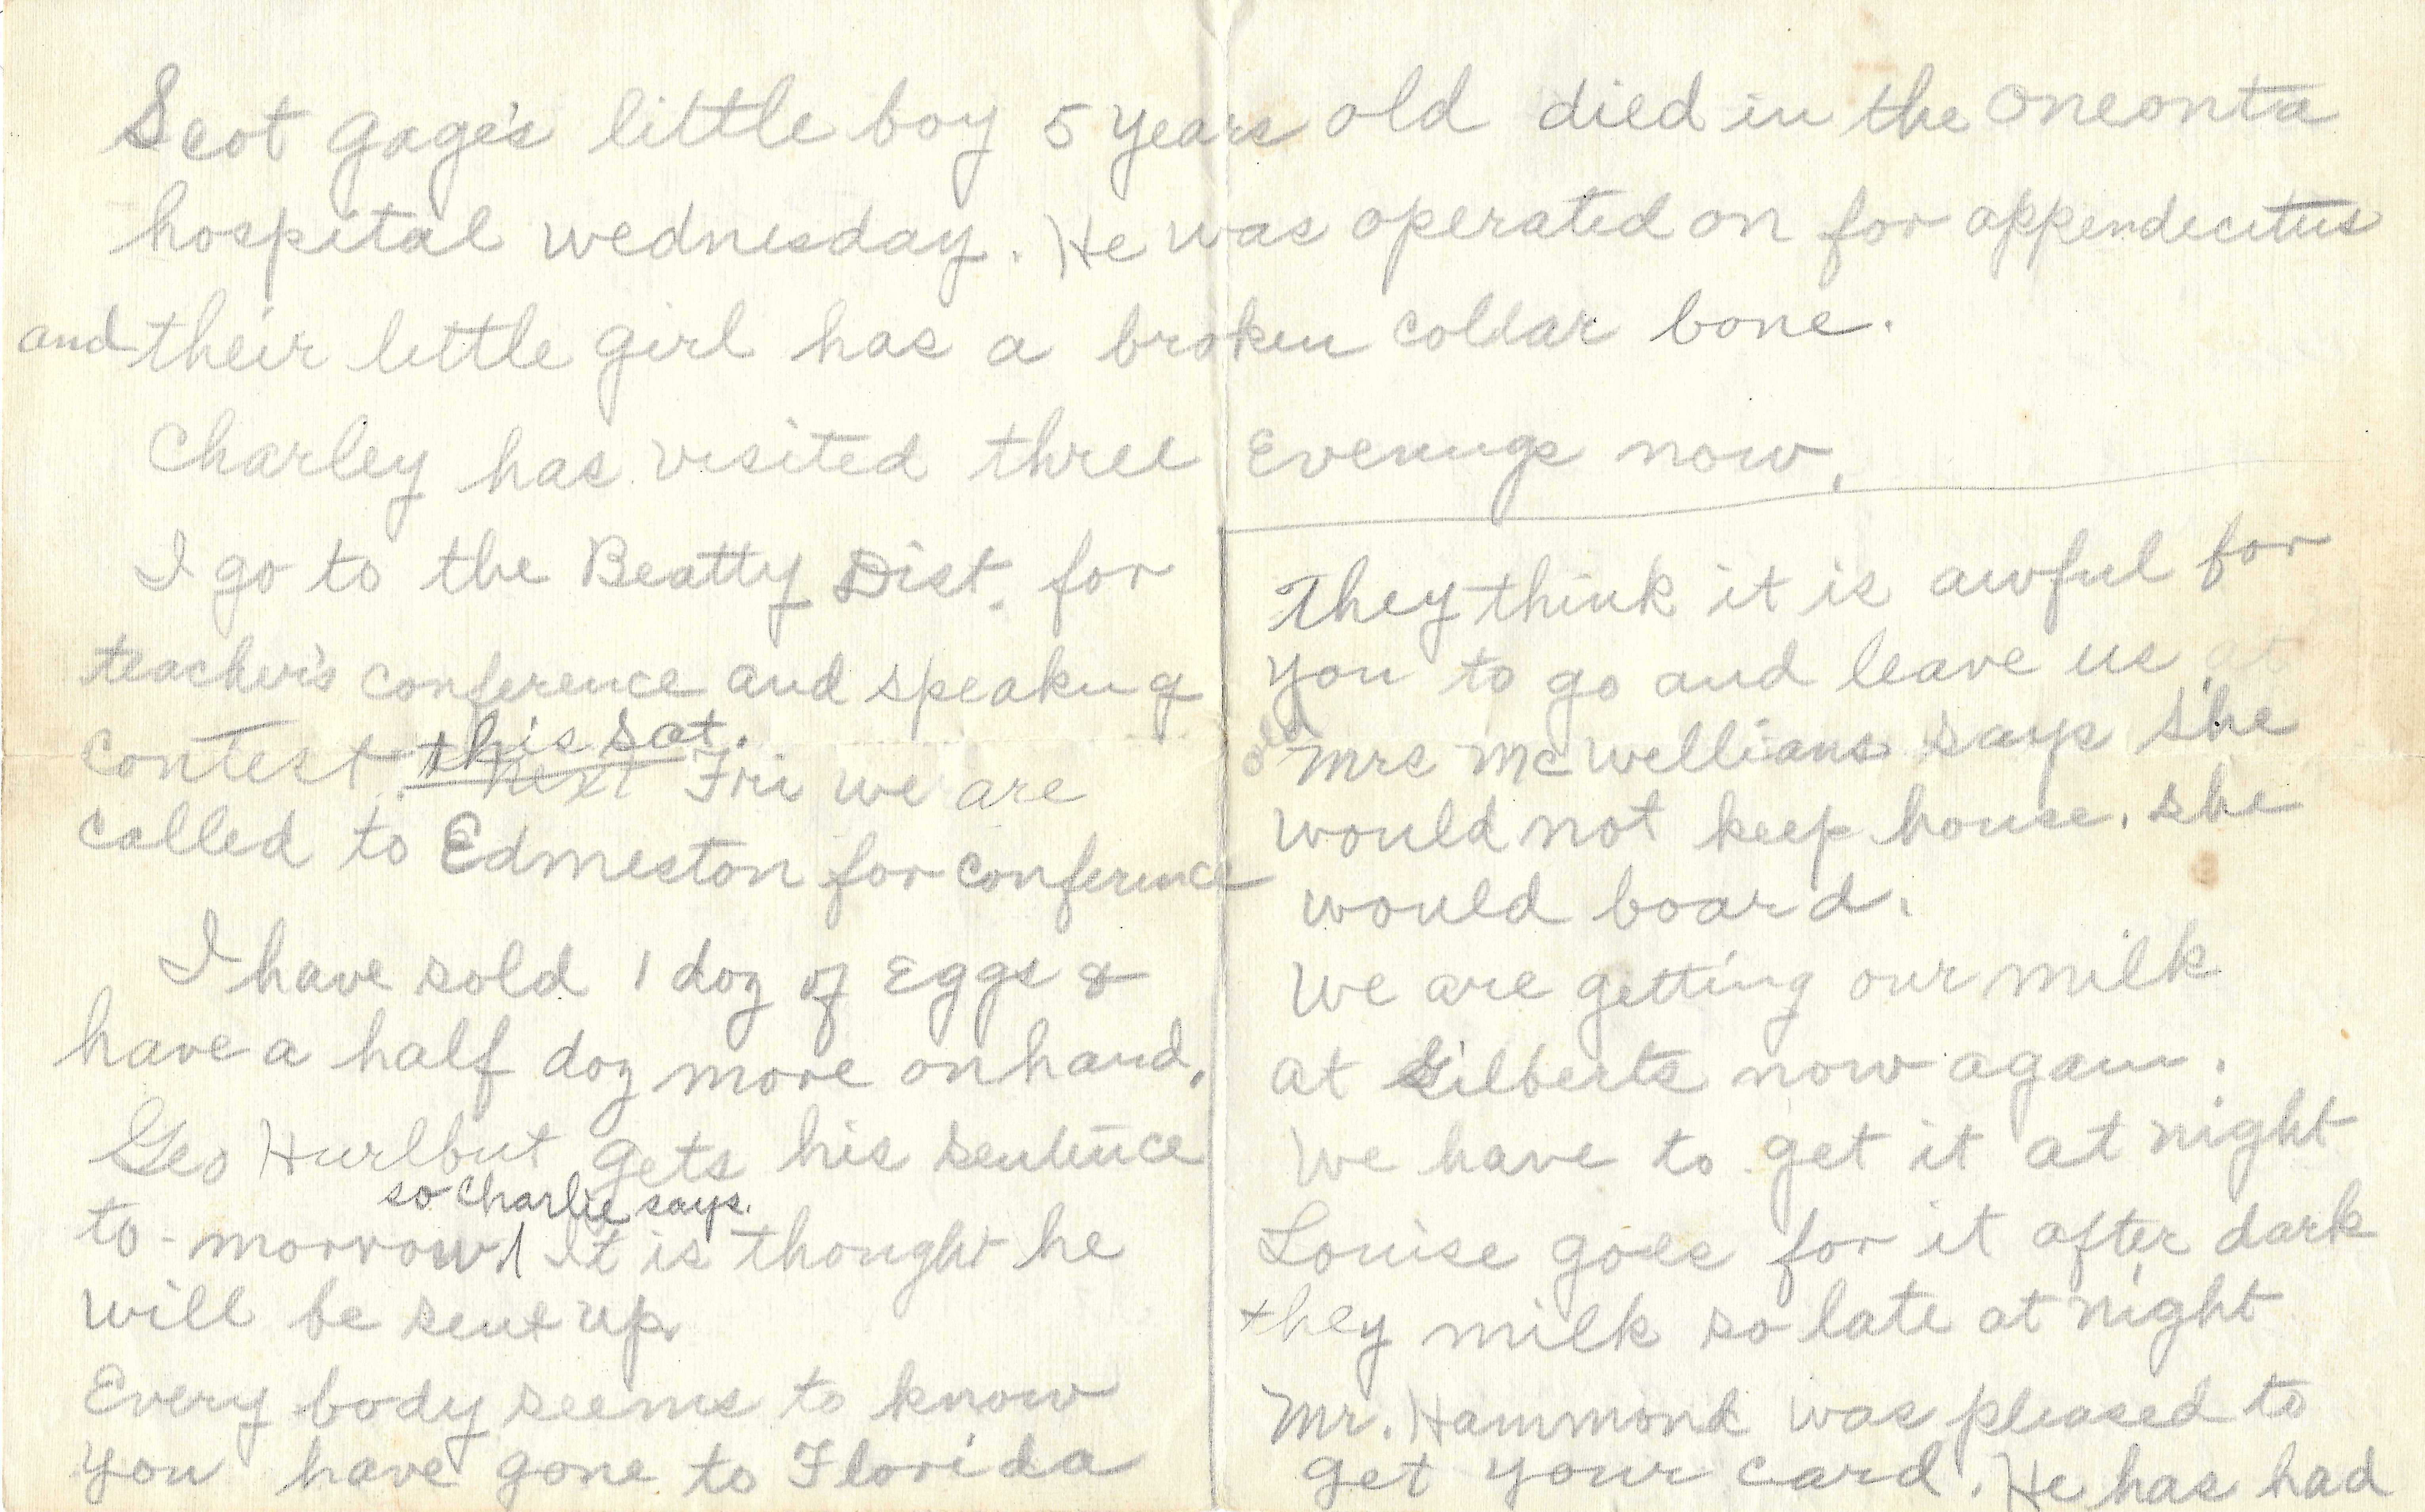 Scot Gage's little boy 5 years old died in the Oneonta
hospital wednesday. He was operated on for appendecitus
and their little girl has a broken collar bone.
Charley has visited three Evenings now.
I go to the Beatty Dist. for
teacher's conference and speaking
contest this Sat.
next Fri we are
called to Edmeston for conference
I have sold 1 doz of Eggs &
have a half doz more on hand.
Geo Hurlbut gets his sentence
so Charlie says.
to-morrow It is thought he
will be sent up
Every body seems to know
you have gone to Florida
They think it is awful for
you to go and leave us at
Mrs McWellians says she
would not keep house. she
would board.
We are getting our milk
at Gilberts now again.
We have to get it at night
Louise goes for it after dark
they milk so late at night
Mr. Hammond was pleased to
get your card. He has had